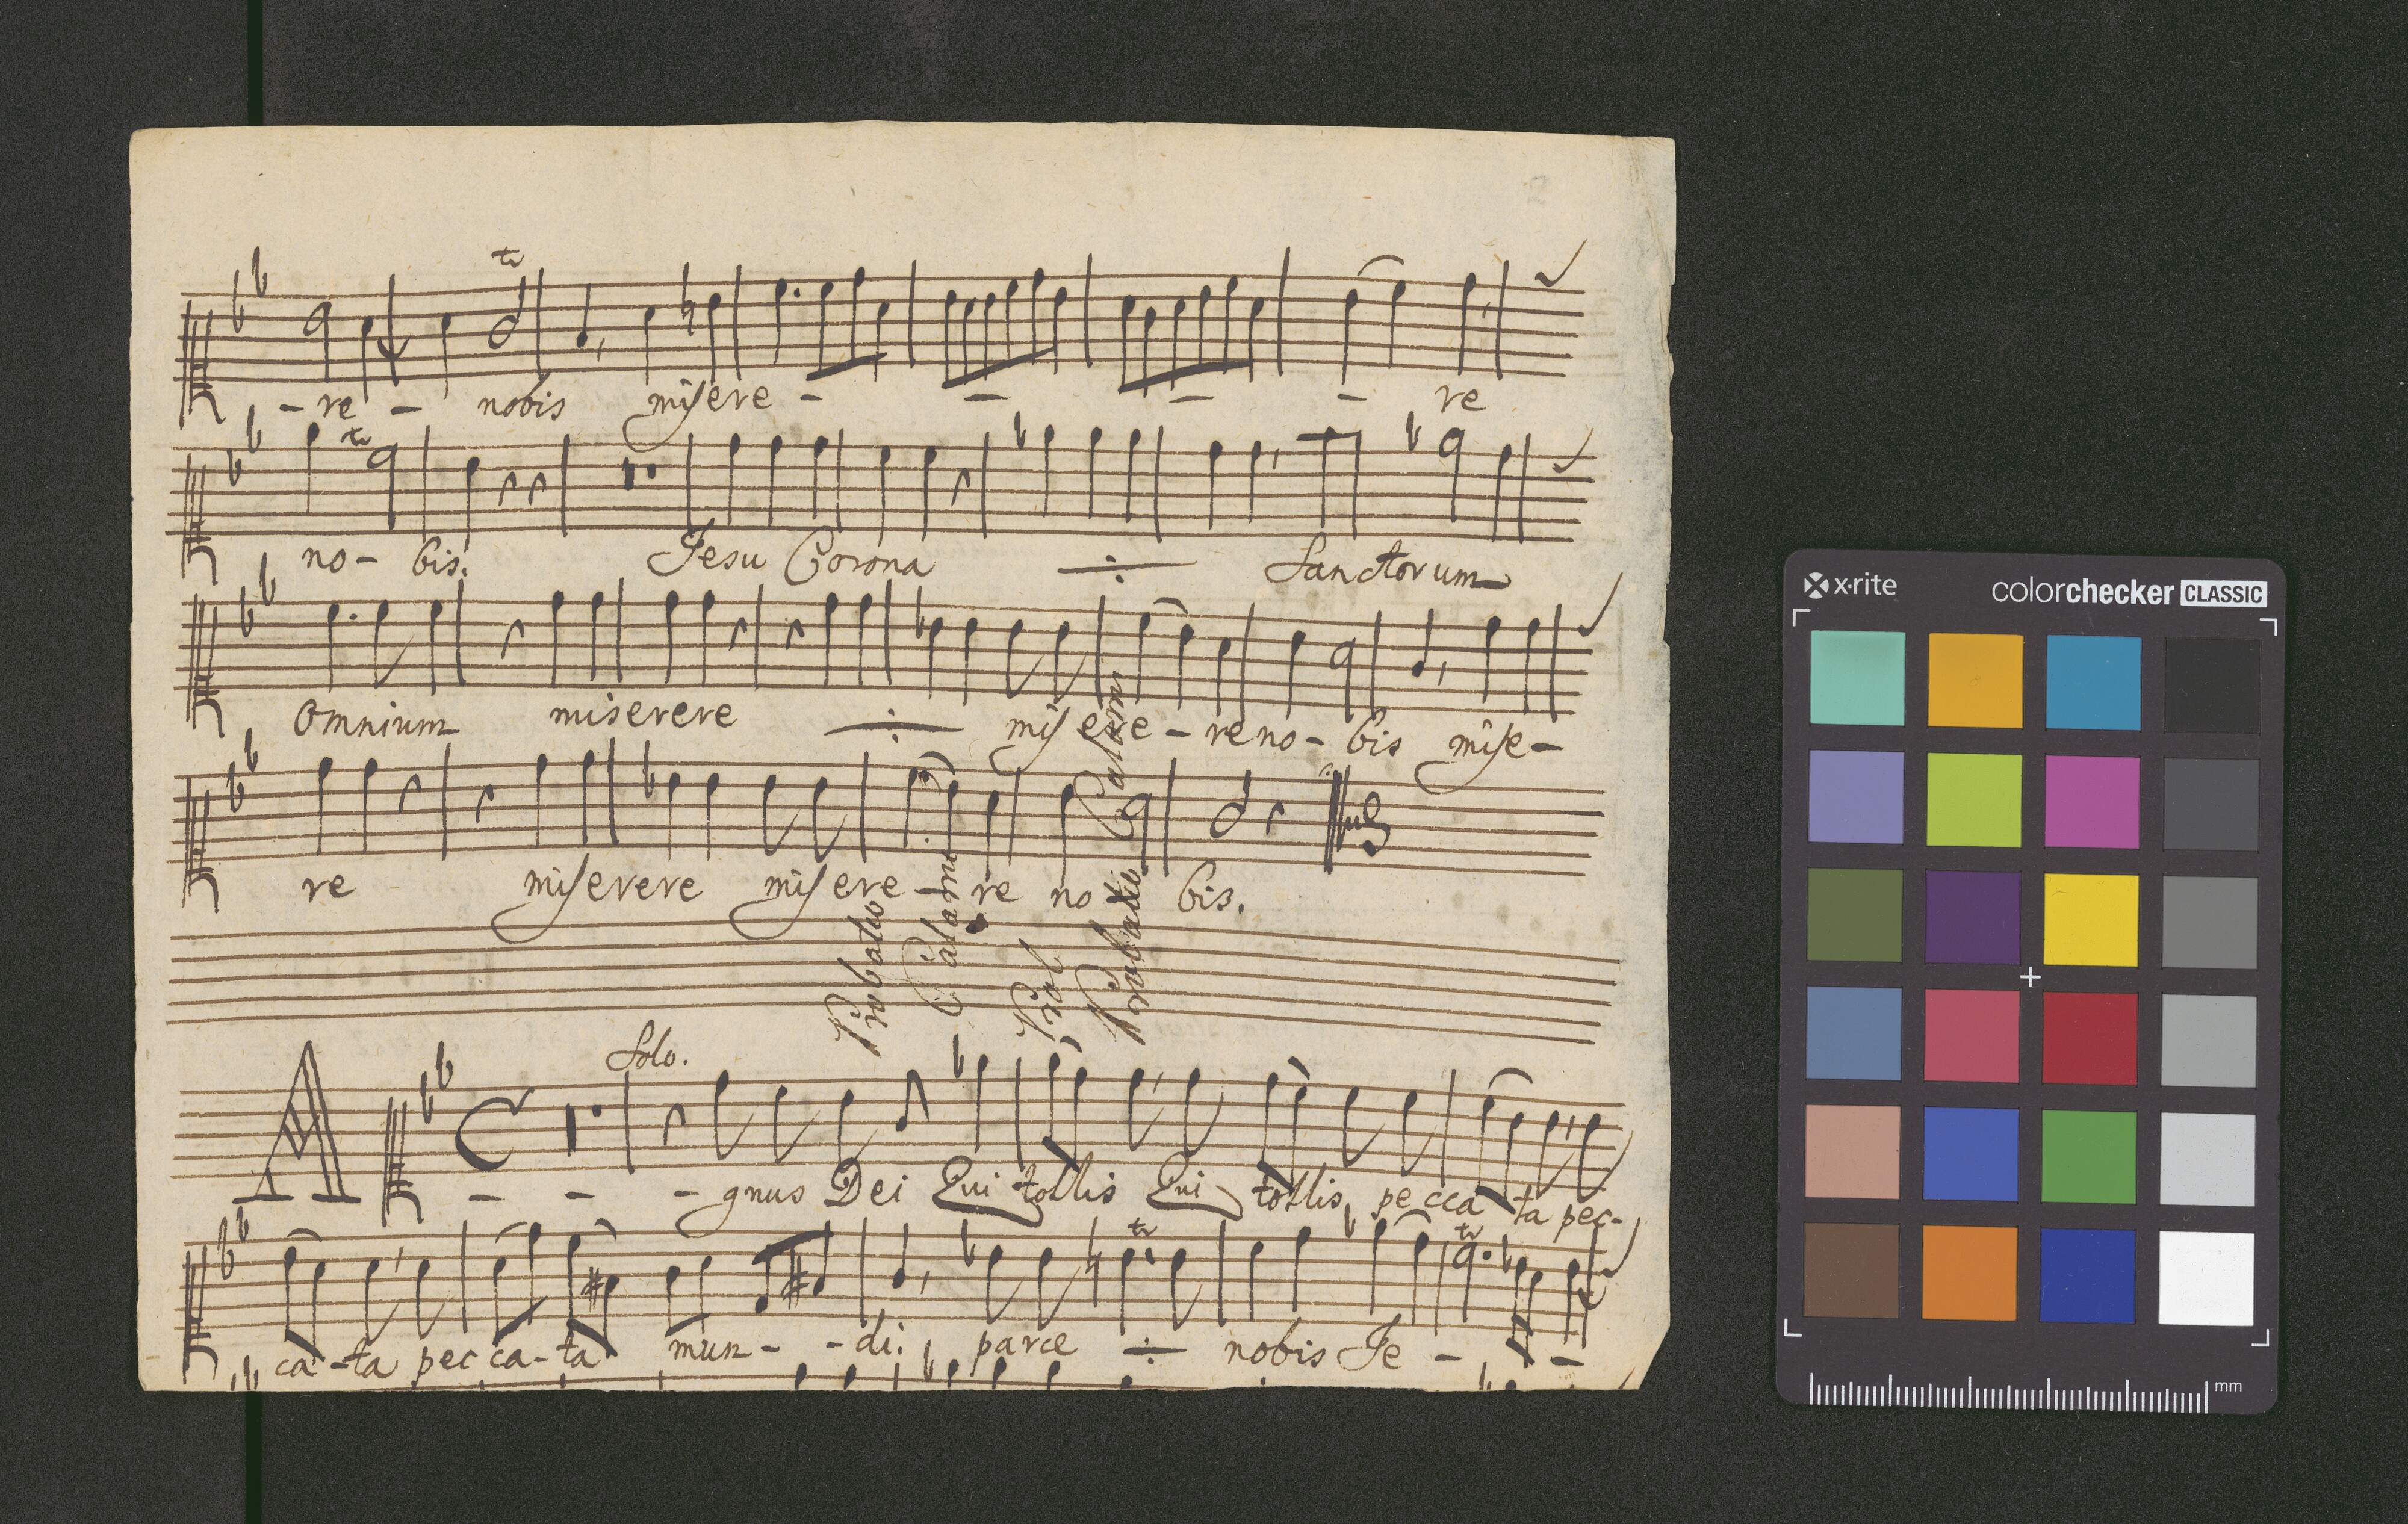 - re - nobis misere - - - - re
no- bis. Jesu Corona ÷ Sanctorum
Omnium miserere ÷ misere - re no- bis mise-
re miserere misere - re no bis.
Probatio
Calami
Prob
Probatio Calami
Solo.
A - - - gnus Dei Qui tollis Qui tollis pecca ta pec-
ca-ta pecca-ta mun- -di. parce ÷ nobis Je - -
x·rite colorchecker CLASSIC
mm